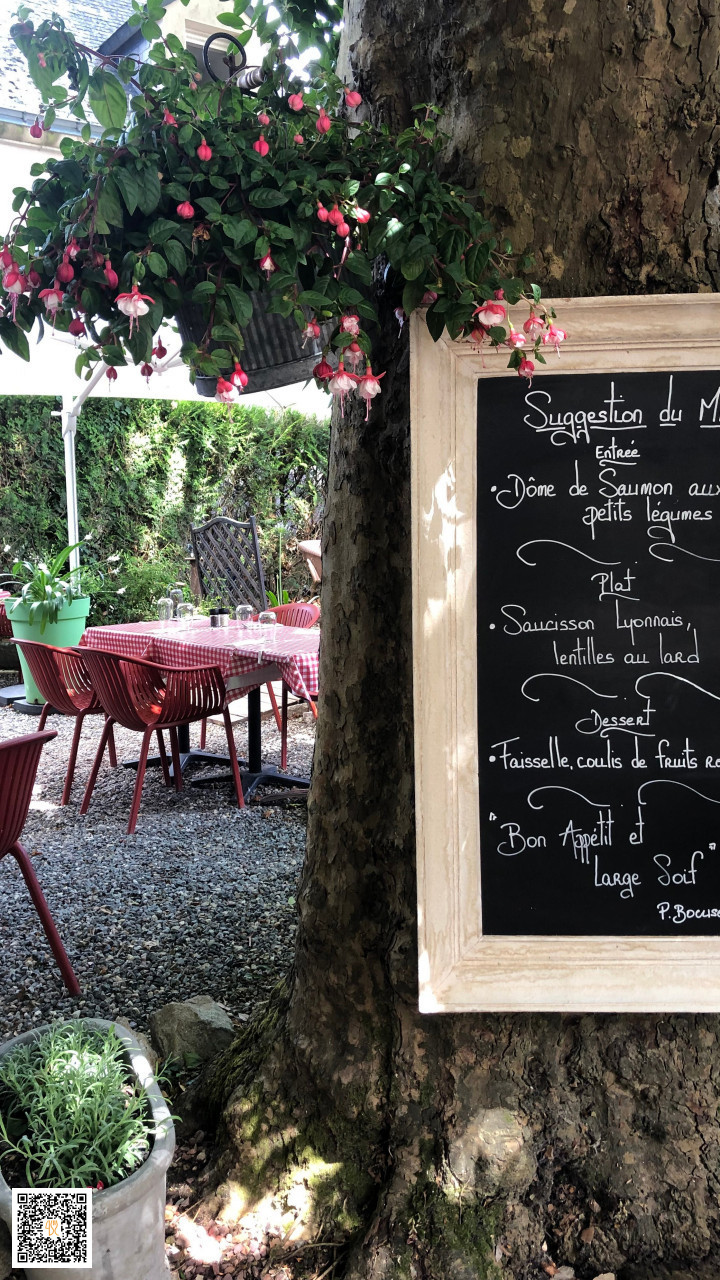 Suggestion du M
Entrée
• Dôme de Saumon aux
petits légumes
Plat
• Saucisson Lyonnais,
lentilles au lard
Dessert
• Faisselle, coulis de fruits
" Bon Appétit et
Large Soif "
P. Bocuse